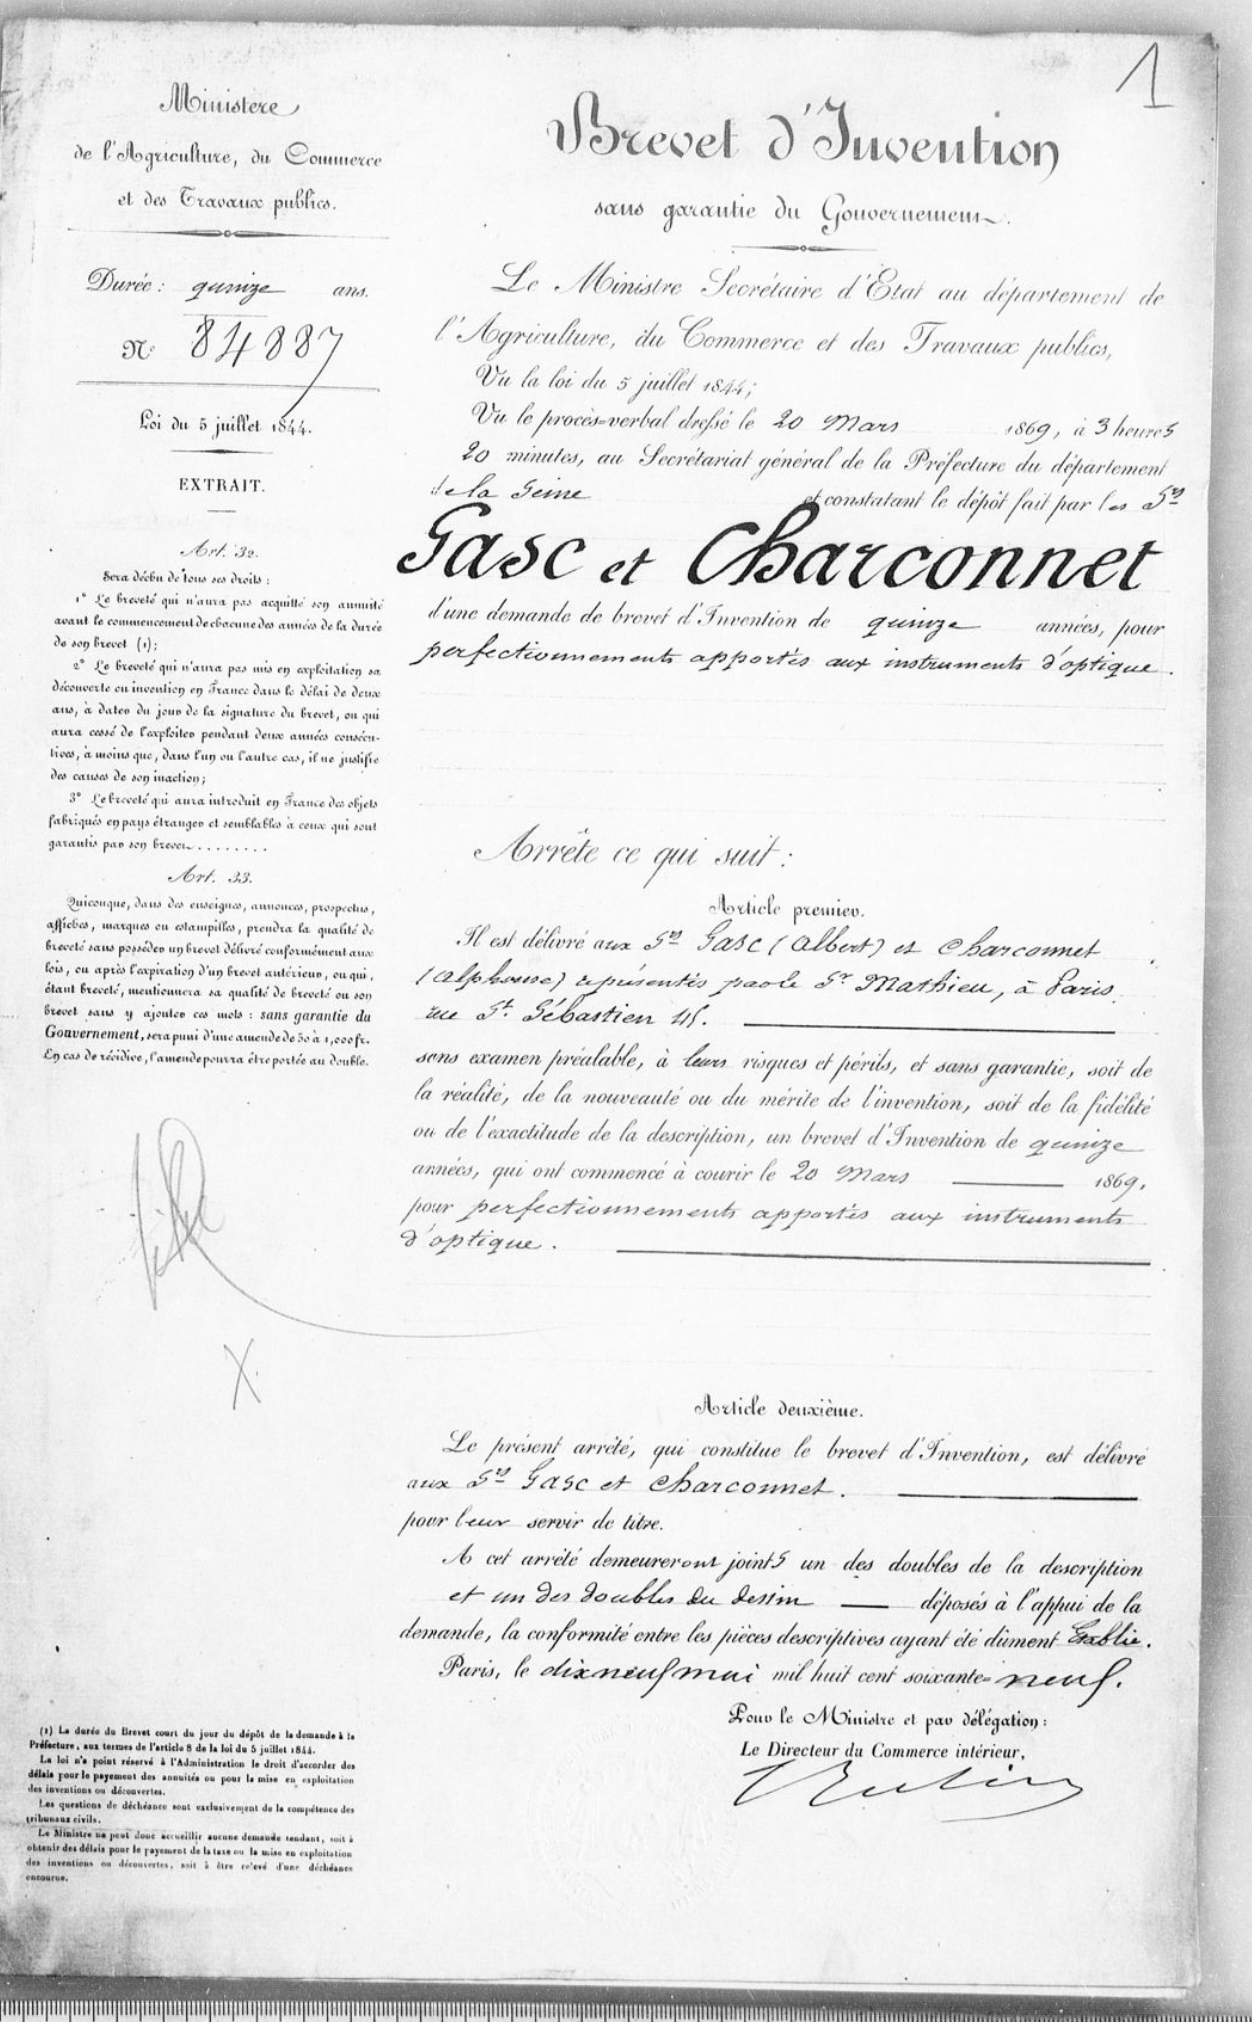 1
Ministère
de l'Agriculture, du Commerce
et des Travaux publics.
Durée : quinze ans.
N° 84887
Loi du 5 juillet 1844.
EXTRAIT.
Art. 32.
Sera déchu de tous ses droits :
1° Le breveté qui n'aura pas acquitté son annuité
avant le commencement de chacune des années de la durée
de son brevet (1);
2° Le breveté qui n'aura pas mis en exploitation sa
découverte ou invention en France dans le délai de deux
ans, à dater du jour de la signature du brevet, ou qui
aura cessé de l'exploiter pendant deux années consécu-
tives, à moins que, dans l'un ou l'autre cas, il ne justifie
des causes de son inaction;
3° Le breveté qui aura introduit en France des objets
fabriqués en pays étranger et semblables à ceux qui sont
garantis par son brevet........
Art. 33.
Quiconque, dans des enseignes, annonces, prospectus,
affiches, marques ou estampilles, prendra la qualité de
breveté sans posséder un brevet délivré conformément aux
lois, ou après l'expiration d'un brevet antérieur, ou qui,
étant breveté, mentionnera sa qualité de breveté ou son
brevet sans y ajouter ces mots : sans garantie du
Gouvernement, sera puni d'une amende de 50 à 1,000 fr.
En cas de récidive, l'amende pourra être portée au double.
X.
(1) La durée du Brevet court du jour du dépôt de la demande à la
Préfecture, aux termes de l'article 8 de la loi du 5 juillet 1844.
La loi n'a point réservé à l'Administration le droit d'accorder des
délais pour le payement des annuités ou pour la mise en exploitation
des inventions ou découvertes.
Les questions de déchéance sont exclusivement de la compétence des
tribunaux civils.
Le Ministre ne peut donc accueillir aucune demande tendant, soit à
obtenir des délais pour le payement de la taxe ou la mise en exploitation
des inventions ou découvertes, soit à être relevé d'une déchéance
encourue.
Brevet d'Invention
sans garantie du Gouvernement.
Le Ministre Secrétaire d'Etat au département de
l'Agriculture, du Commerce et des Travaux publics,
Vu la loi du 5 juillet 1844;
Vu le procès-verbal dressé le 20 Mars 1869, à 3 heures
20 minutes, au Secrétariat général de la Préfecture du département
de la Seine et constatant le dépôt fait par les Srs
Gasc et Charconnet
d'une demande de brevet d'Invention de quinze années, pour
perfectionnements apportés aux instruments d'optique.
Arrête ce qui suit :
Article premier.
Il est délivré aux Srs Gasc (Albert) et Charconnet
(Alphonse) représentés par le Sr Mathieu, à Paris,
rue St. Sébastien 45.
sans examen préalable, à leurs risques et périls, et sans garantie, soit de
la réalité, de la nouveauté ou du mérite de l'invention, soit de la fidélité
ou de l'exactitude de la description, un brevet d'Invention de quinze
années, qui ont commencé à courir le 20 Mars 1869,
pour perfectionnements apportés aux instruments
d'optique.
Article deuxième.
Le présent arrêté, qui constitue le brevet d'Invention, est délivré
aux Srs Gasc et Charconnet.
pour leur servir de titre.
A cet arrêté demeureront joints un des doubles de la description
et un des doubles du dessin déposés à l'appui de la
demande, la conformité entre les pièces descriptives ayant été dûment Etablie.
Paris, le dix neuf mai mil huit cent soixante-neuf.
Pour le Ministre et par délégation :
Le Directeur du Commerce intérieur,